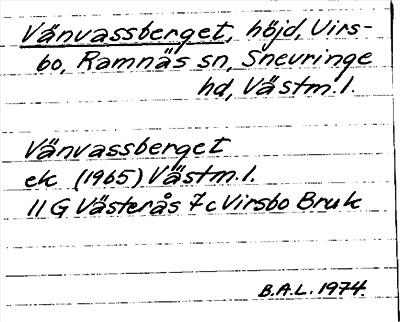 Vänvassberget, höjd, Virs-
bo, Ramnäs sn, Snevringe
hd, Västm. l.
Vänvassberget
ek (1965) Västm. l.
11 G Västerås 7c Virsbo Bruk
B.A.L. 1974